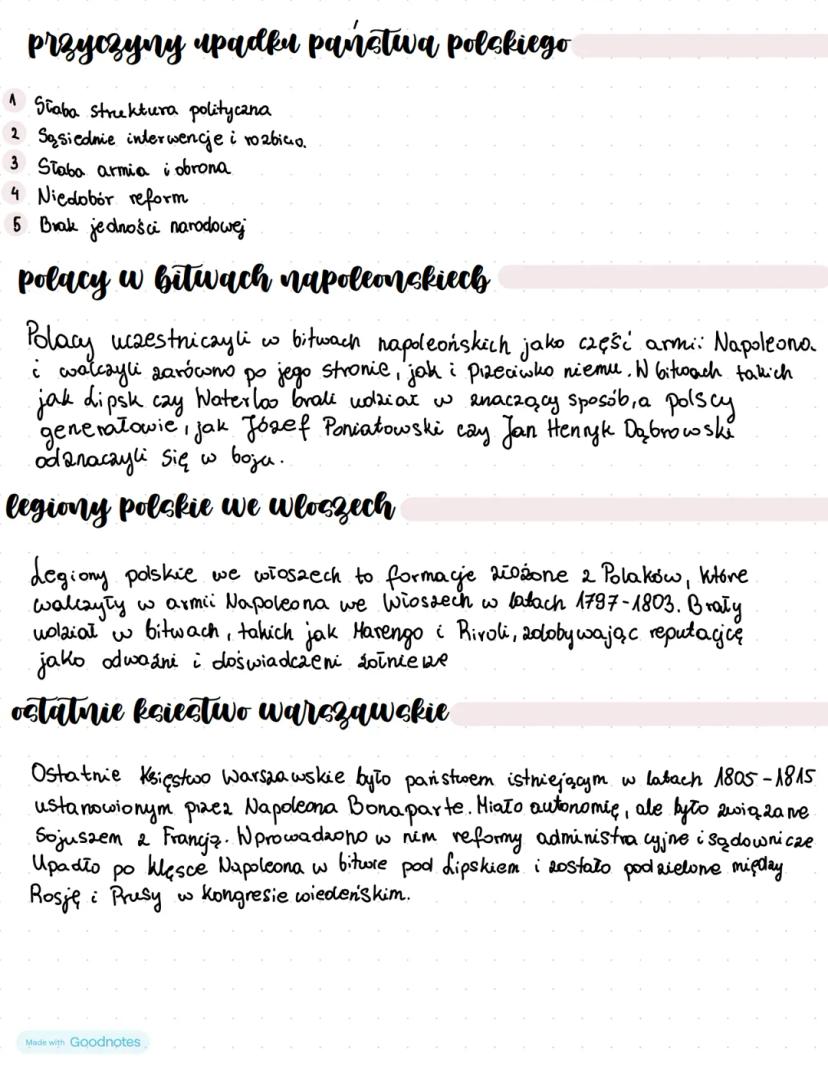 przyczyny upadku państwa polskiego
1 Słaba struktura polityczna
2 Sąsiednie interwencje i rozbicio.
3 Słaba armia i obrona
4 Niedobór reform
5 Brak jedności narodowej
polacy w bitwach napoleonskiech
Polacy uczestniczyli w bitwach napoleońskich jako część armii Napoleona
i walczyli zarówno po jego stronie, jak i przeciwko niemu. W bitwach takich
jak Lipsk czy Waterloo brali udział w znaczący sposób, a polscy
generałowie, jak Józef Poniatowski czy Jan Henryk Dąbrowski
odznaczyli się w boju.
legiony polskie we wloszech
Legiony polskie we włoszech to formacje złożone z Polaków, które
walczyły w armii Napoleona we Włoszech w latach 1797-1803. Brały
udział w bitwach, takich jak Marengo i Rivoli, zdobywając reputację
jako odważni i doświadczeni żołnierze
ostatnie ksiestwo warszawskie
Ostatnie Księstwo Warszawskie było państwem istniejącym w latach 1805-1815
ustanowionym przez Napoleona Bonaparte. Miało autonomię, ale było związane
sojuszem z Francją. Wprowadzono w nim reformy administracyjne i sądownicze
Upadło po klęsce Napoleona w bitwie pod Lipskiem i zostało podzielone między
Rosję i Prusy w kongresie wiedeńskim.
Made with Goodnotes